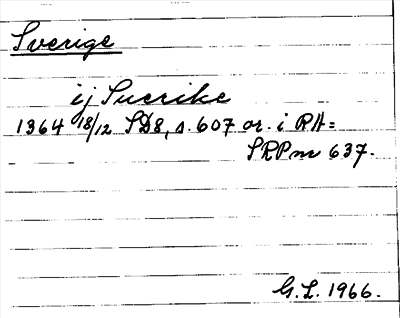 Sverige
ij Suerike
1364 18/12 SD8, s. 607 or. i RA =
SRP nr 637.
G.L. 1966.